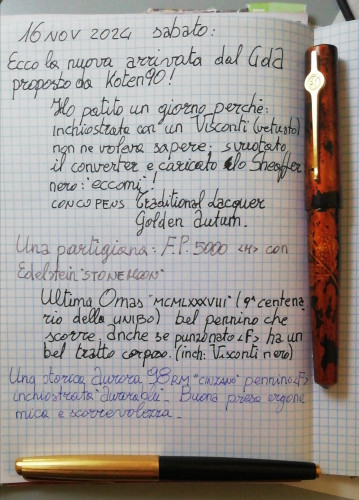 16 NOV 2024 sabato:
Ecco la nuova arrivata dal GdA
proposto da Koten90!
Ho patito un giorno perchè:
inchiostrata con un Visconti (vetusto)
non ne voleva sapere; svuotato
il converter e caricato lo Sheaffer
nero: "eccomi"!
CONCOPENS Traditional Lacquer
Golden autum.
Una partigiana: F.P. 5000 <M> con
Edelstein "STONEMOON"
Ultima Omas "MCMLXXXVIII" (9° centena
rio della UNIBO) bel pennino che
scorre, anche se punzonato <F> ha un
bel tratto corposo. (inch: Visconti nero)
Una storica Aurora 98 RM "CINZANO" pennino <F>
inchiostrata "Aurorablu". Buona presa ergono
mica e scorrevolezza.